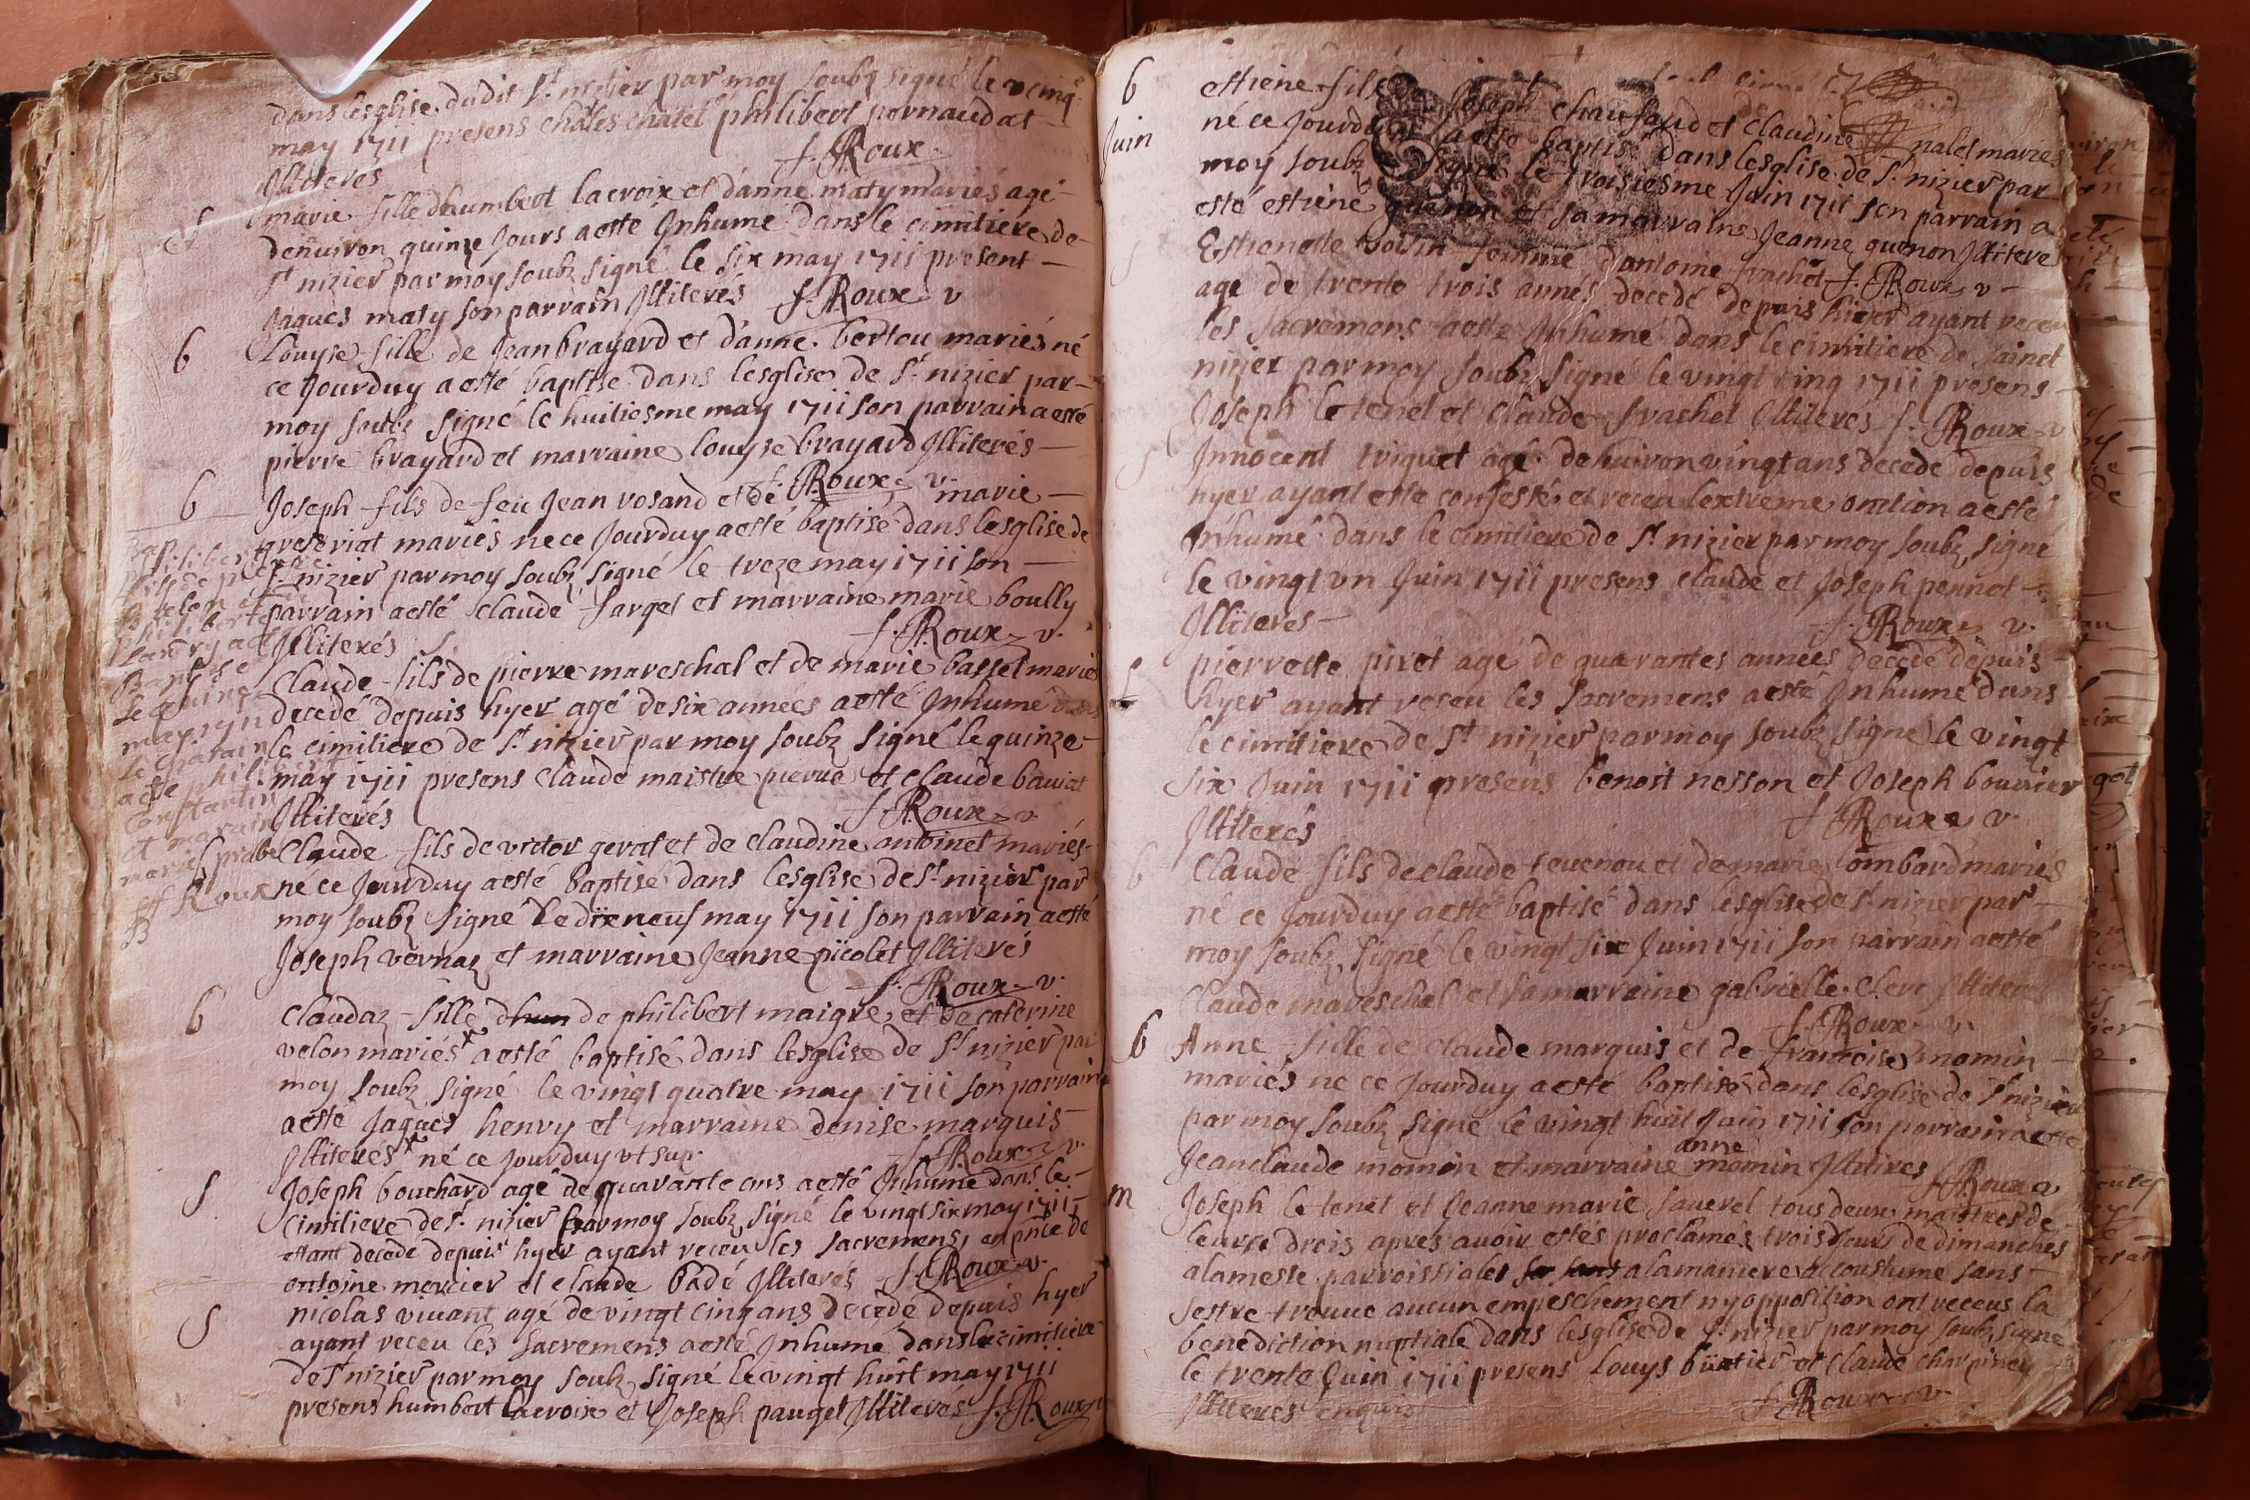 dans lesglise dudit St nizier par moy soubz signé le cinq
may 1711 presens chales chatel philibert pornaud at
Illiterés
f. Roux
S
marie fille dhumbert lacroix et d'anne maty mariés agé
denuiron quinze Jours a esté Jnhumé dans le cimitiere de
St nizier par moy soubz signé le six may 1711 present
Jaques maty son parrain Illiterés f. Roux v
b
Louyse fille de Jean brayard et d'anne bertou mariés né
ce Jourduy a esté baptisé dans lesglise de St nizier par
moy soubz signé le huitiesme may 1711 son parrain a esté
pierre brayard et marraine louyse brayard Illiterés
f. Roux v.
b
Joseph fils de feu Jean rosand et de marie
mariés ne ce Jourduy a esté baptisé dans lesglise de
St nizier par moy soubz signé le treze may 1711 son
parrain a esté claude farget et marraine marie boully
Illiterés
f. Roux v.
S.
Claude fils de pierre mareschal et de marie basset marié
decedé depuis hyer agé de six années a esté Jnhumé dans
le cimitiere de St nizier par moy soubz signé le quinze
may 1711 presens claude maistre pierre et claude bauiat
Illiterés
f. Roux v
philibert
fils de pierre
philiberte
Landry a esté
Baptisé
le quinze
may 1711
le parain
a esté philibert
Constantin
et maraine
marie
f Roux
B
Claude fils de victor gerat et de claudine antoinet mariés
né ce Jourduy a esté baptisé dans lesglise de St nizier par
moy soubz signé le dixneuf may 1711 son parrain a esté
Joseph vernaz et marraine Jeanne picolet Illiterés
f. Roux v.
b
Claudaz fille dhum de philibert maigre et de caterine
velon mariés x a esté baptisé dans lesglise de St nizier par
moy soubz signé le vingt quatre may 1711 son parrain
a esté Jaques henry et marraine denise marquis
Illiterés x né ce Jourduy vt sup.
f. Roux v.
S
Joseph bouchard agé de quarante ans a esté Jnhumé dans le
Cimitiere de St nizier par moy soubz signé le vingt six may 1711
estant decedé depuis hyer ayant receu les sacremens, en pnce de
antoine mercier et claude Badé Illiterés f. Roux v.
S
nicolas viuant agé de vingt cinq ans decedé depuis hyer
ayant receu les sacremens a esté Jnhumé dans le cimitiere
de St nizier par moy soubz signé le vingt huit may 1711
presens humbert lacroix et Joseph pauget Illiterés f. Roux v
b
Juin
estiene fils Joseph chausaud et claudine nalet mariés
né ce Jourduy a esté baptisé dans lesglise de St nizier par
moy soubz signé le troisiesme Juin 1711 son parrain a
esté estiene quenon et sa marraine Jeanne quenon Illiteré
f. Roux v
S
Estienette voisin femme dantoine frachet
agé de trente trois années decedé depuis hier ayant receu
les sacremens a esté Jnhumé dans le cimitiere de sainct
nizier par moy soubz signé le vingt cinq 1711 presens
Joseph le tenet et claude frachet Illiterés f. Roux v
S
Jnnocent triquet agé denuiron vingt ans decedé depuis
hyer ayant esté confessé et receu lextreme onction a esté
Jnhumé dans le cimitiere de St nizier par moy soubz signé
le vingt vn Juin 1711 presens claude et Joseph pennot
Illiterés
f. Roux v.
S
pierrette piret agé de quarantes années decedé depuis
hyer ayant receu les sacremens a esté Jnhumé dans
le cimitiere de St nizier par moy soubz signé le vingt
six Juin 1711 presens benoit nesson et Joseph bouuier
Illiterés
f. Roux v.
b
Claude fils de claude teuenou et de marie lombard mariés
né ce Jourduy a esté baptisé dans lesglise de St nizier par
moy soubz signé le vingt six Juin 1711 son parrain a esté
Claude mareschal et sa marraine gabrielle clerc Illiterés
f. Roux v.
b
Anne fille de claude marquis et de francoise momin
mariés ne ce Jourduy a esté baptisé dans lesglise de St nizier
par moy soubz signé le vingt huit Juin 1711 son parrain a esté
Jean claude momin et marraine anne momin Illitires
f. Roux v
m
Joseph le tenet et Jeanne marie sauerel tous deux maistres de
leurs drois apres auoir estés proclamés trois Jours de dimanches
a la messe parroissiales a la maniere accoustumé sans
sestre trouué aucun empeschement ny opposition ont receus la
benediction nuptiale dans lesglise de St nizier par moy soubz signé
le trente Juin 1711 presens Louys buatier et claude charpiney
Illiterés enquis
f. Roux v.